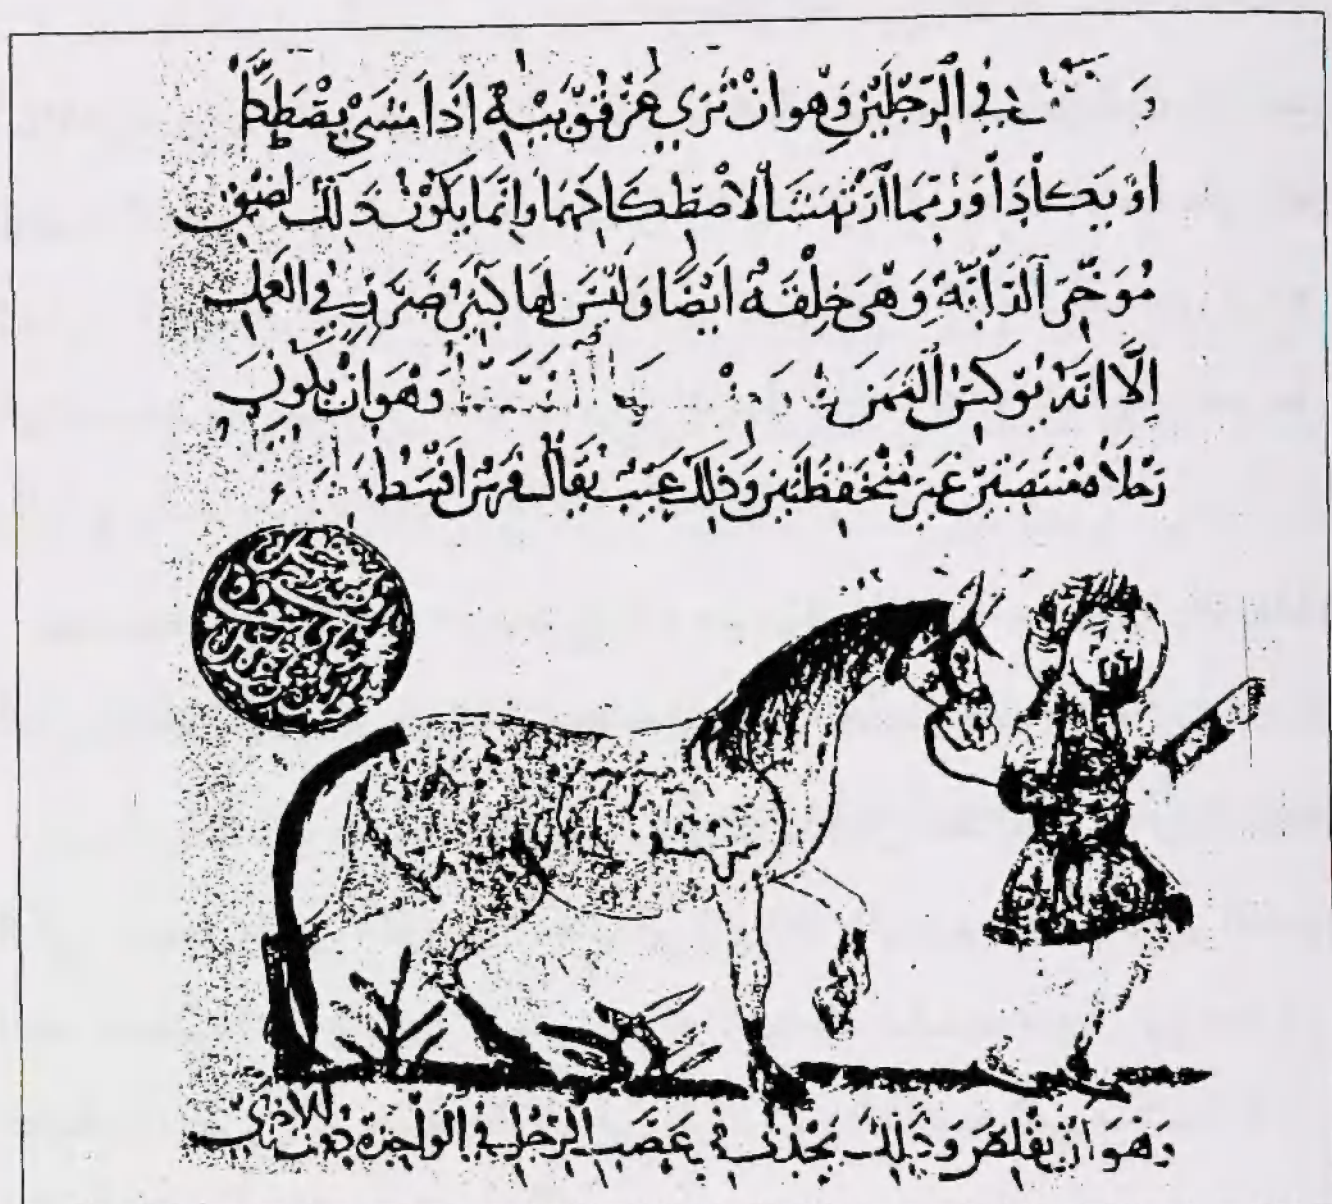 في الرجلين وهو ان ترى عرقوبيه اذا مشى يصطكا
او يكادا وربما ارتهشا لاصطكاكهما وانما يكون ذلك لضيق
مُوَخَّر الدابّة وهي خلقة ايضا وليس لها كبير ضرر في العمل
إلّا انه يوكس الثمن وهو ان يكون
رجلاه منتصبتين غير منخفظتين وذلك عيب يقال فرس اقسط
وهو ان يقلص وذلك يحدث في عصب الرجل في الواحدة دون الاخرى